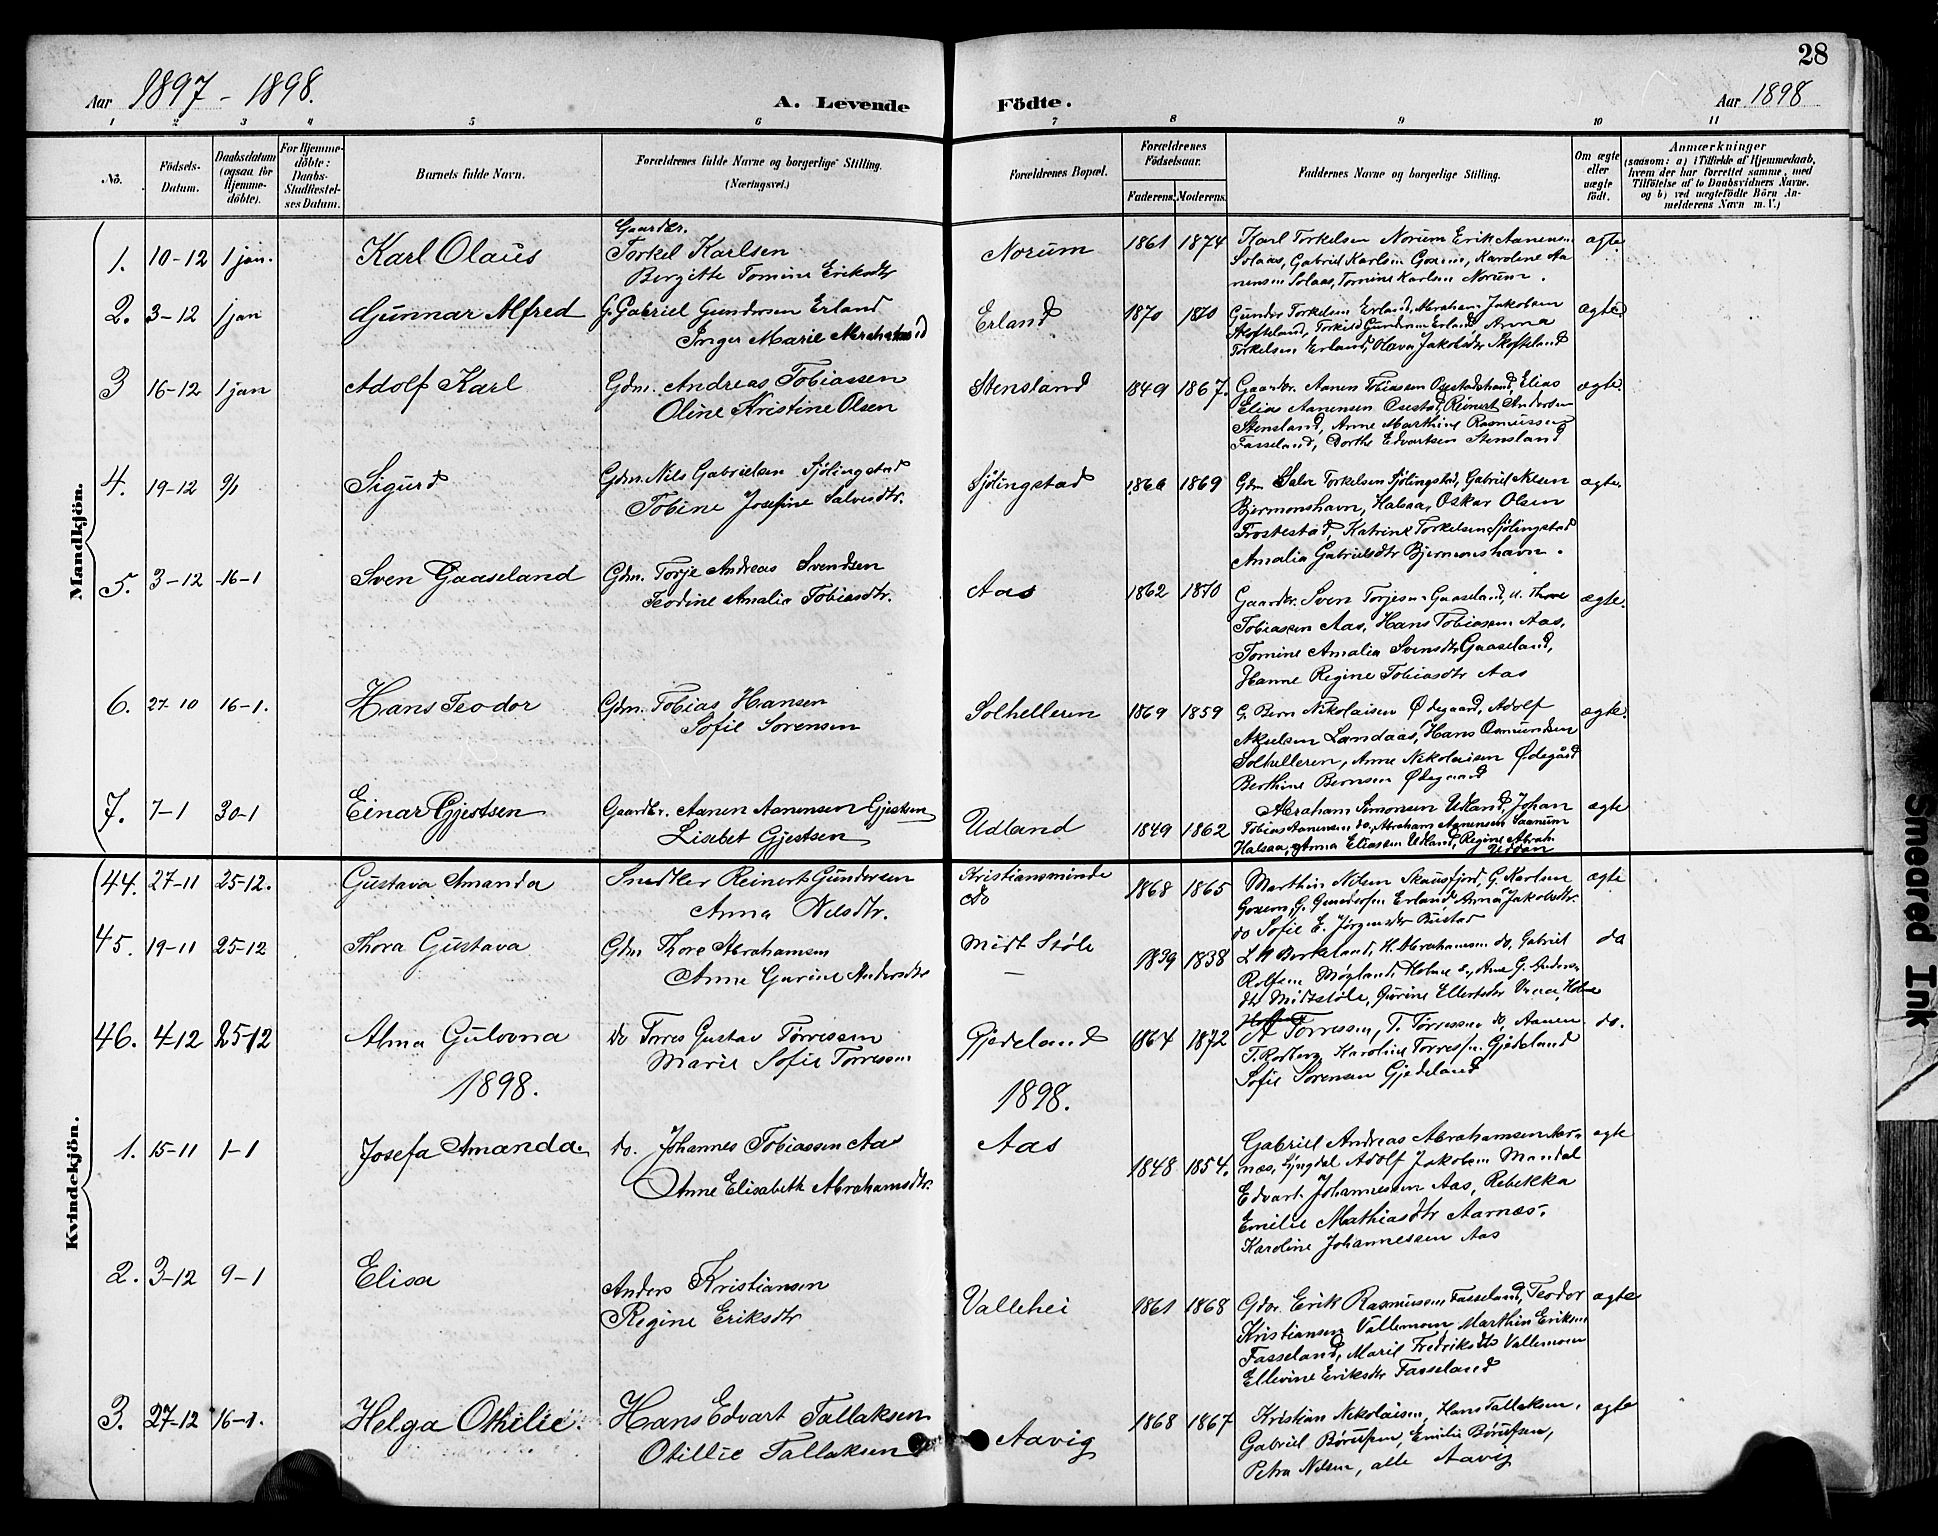 28
Aar 1897 - 1898.
A. Levende Födte.
Aar 1898
1 2 3 4 5 6 7 8 9 10 11
No.
Födsels-Datum.
Daabsdatum (ogsaa for Hjemme-döbte).
For Hjemme-döbte: Daabs-Stadfæstel-ses Datum.
Barnets fulde Navn.
Forældrenes fulde Navne og borgerlige Stilling. (Næringsvei.)
Forældrenes Bopæl.
Forældrenes Födselsaar.
Faderens. Moderens.
Faddernes Navne og borgerlige Stilling.
Om ægte eller uægte födt.
Anmærkninger
(saasom: a) i Tilfælde af Hjemmedaab,
hvem der har forrettet samme, med
Tilföielse af to Daabsvidners Navne.
og b) ved uægtefödte Börn An-
melderens Navn m. V.)
Mandkjön.
1. 10-12 1 jan. Karl Olaus
Gaardbr.
Torkel Karlsen
Bergitte Tomine Eriksdtr
Norum 1861 1874
Karl Torkelsen Norum Erik Aanens-
Solaas, Gabriel Karlsen Goxem, Karoline Aa
nensen Solaas, Tomine Karlsen Norum.
ægte
2. 3-12 1 jan Gunnar Alfred
G. Gabriel Gundersen Erland
Inger Marie
Erland 1870 1870
Gunder Torkelsen Erland, Abraham Jakobsen
Skofteland, Torkild Gundersen Erland, Anna
Torkelsen Erland, Olava Jakobsdtr Skofteland
ægte
3 16-12 1 jan Adolf Karl
Gdm. Andreas Tobiassen
Oline Kristine Olsen
Stensland 1849 1867.
Gaardbr. Aanen Tobiassen Elias
Elias Aanensen Reinert Andersen
Stensland, Anne Marthine Rasmussen
Fasseland, Dorthe Edvartsen Stensland
ægte.
4. 19-12 9/1 Sigurd
Gdm. Nils Gabrielsen Sjölingstad
Tobine Josefine Salvesdtr.
Sjölingstad 1869
Gdm Salve Torkelsen Sjölingstad, Gabriel Nilsen
Bjermonshavn, Halsaa, Oskar Olsen
Frostestad, Katrine Torkelsen Sjölingstad
Amalia Gabrielsdtr Bjermonshavn.
ægte.
5. 3-12 16-1 Sven Gaaseland
Gdm. Torje Andreas Svendsen
Teodine Amalie Tobiasdtr.
Aas 1862 1870
Gaardbr. Sven Torjesen Gaaseland,
Tobiassen Aas, Hans Tobiassen Aas,
Tomine Amalia Svensdtr Gaaseland,
Hanne Regine Tobiasdtr Aas
ægte.
6. 27-10 16-1. Hans Teodor
Gdm. Tobias Hansen
Sofie Sorensen
Solhelleren 1869 1859
G. Bern Nikolaisen Ødegaard, Adolf
Akselsen Landaas, Hans Osmundsen
Solhelleren, Anne Nikolaisen Ødegård
Berthine Bernsen Ødegaard
ægte.
7. 7-1 30-1 Einar Gjestsen
Gaardbr. Aanen Aanensen Gjestsen
Lisebet Gjestsen
Udland 1849 1862
Abraham Simonsen Udland, Johan
Tobias Aanensen do, Abraham Aanensen Saanum
Halsaa, Anna Eliasen Udland, Regine Abrah.
ægte
Kvindekjön.
44. 27-11 25-12. Gustava Amanda
Snedker Reinert Gundersen
Anna Nilsdtr.
Kristiansminde
do
1868 1865
Marthin Nilsen Skausfjord, G. Karlsen
Goxem, G. Gundersen Erland Anna Jakobsdtr.
do Sofie E. Jörgensdtr
ægte
45. 19-11 25-12 Thora Gustava
Gdm Thore Abrahamsen
Anne Gurine Andersdtr
Midt Stöle
1839 1838
Birkeland, H. Abrahamsen do, Gabriel
Rolfsen Møgland, Holme s., Ane G. Anders-
dtr Midtstöle, Gurine Ellertsdtr Holme
do
46. 4-12 25-12 Alma Gulovna
do Torres Gustav Tørressen
Marie Sofie Torressen
Gjedeland 1864 1872
Torressen, T. Törressen do, Aanen
Karoline Gjedeland
Sofie Sorensen Gjedeland
do.
1898.
1898.
1. 15-11 1-1 Josefa Amanda.
do. Johannes Tobiassen Aas
Anne Elisabeth Abrahamsdtr.
Aas 1848 1854.
Gabriel Andreas Abrahamsen Aar-
næs, Lyngdal Adolf Jakobsen Mandal
Edvart Johannessen Aas, Rebekka
Emilie Mathiasdtr Aarnæs.
Karoline Johannessen Aas
ægte
2. 3-12 9-1 Elisa
Anders Kristiansen
Regine Eriksdtr
Vallehei 1861 1868
Gdbr. Erik Rasmussen Fasseland, Teodor
Kristiansen Vallemoen Marthin Eriksen
Fasseland, Marie Fredriksdtr Vallemoen
Ellevine Eriksdtr Fasseland
ægte
3. 27-12 16-1. Helga Othilie.
Hans Edvart Tallaksen
Otillie Tallaksen
Aavig 1868 1867
Kristian Nikolaisen, Hans Tallaksen,
Gabriel Börufsen, Emilie Börufsen,
Petra Nilsen, alle Aavig
ægte
Smeared Ink